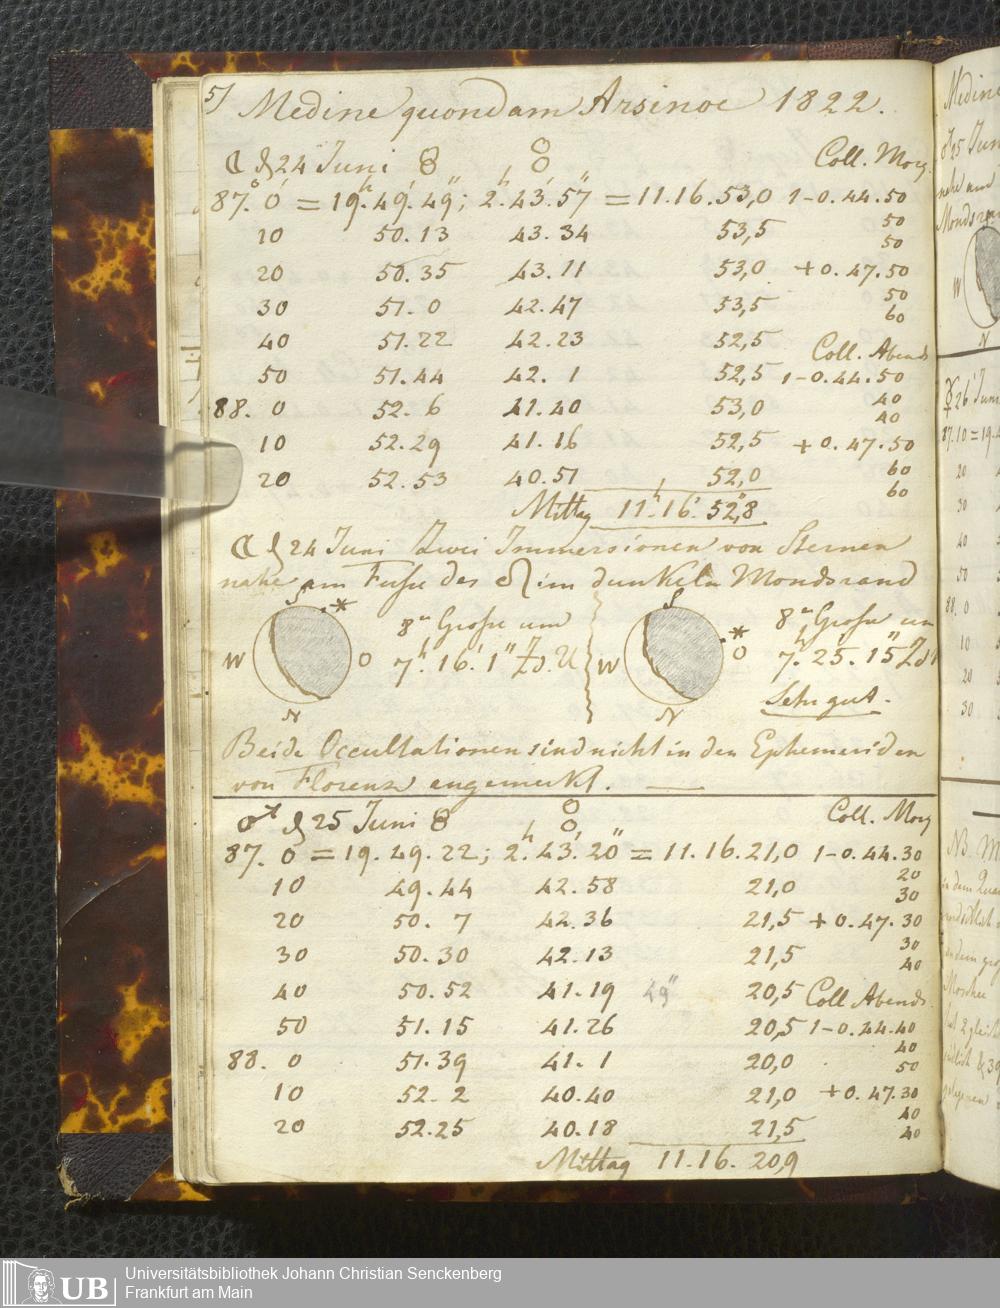 51 Medine quondam Arsinoe 1822.
☾ d 24 Juni Coll. Morg.
87.° 0' = 19.h 49.' 49."; 2.h 43.' 57" = 11.16.53,0 1-0.44.50
10 50.13 43.34 53,5 50
50
20 50.35 43.11 53,0 +0.47.50
30 51.0 42.47 53,5 50
60
40 51.22 42.23 52,5
Coll. Abends
50 51.44 42.1 52,5 1-0.44.50
88. 0 52.6 41.40 53,0 40
40
10 52.29 41.16 52,5 +0.47.50
20 52.53 40.51 52,0 60
60
Mittag 11.h 16.' 52",8
☾ d 24 Juni Zwei Immersionen von Sternen
nahe am Fusse des ☊ im dunkeln Mondsrand
S * S
8n Grosse um 8n Grosse um
W O 7.h 16.' 1" Zd. U W * O 7.h 25.' 15" Zd
Sehr gut.
N N
Beide Occultationen sind nicht in den Ephemeriden
von Florenz angemerkt.
♂ d 25 Juni Coll. Morg
87. 0 = 19.49.22; 2.h 43.' 20" = 11.16.21,0 1-0.44.30
20
10 49.44 42.58 21,0 30
20 50.7 42.36 21,5 +0.47.30
30 50.30 42.13 21,5 30
40
40 50.52 41.19 49" 20,5 Coll. Abends.
50 51.15 41.26 20,5 1-0.44.40
40
88. 0 51.39 41.1 20,0 50
10 52.2 40.40 21,0 +0.47.30
40
20 52.25 40.18 21,5 40
Mittag 11.16.20,9
Medine
♂ 25 Juni
nahe am
W
N
☿ 26 Juni
87.10 = 19.
20
30
40
50
88. 0
10
20
30
NB.
UB
Universitätsbibliothek Johann Christian Senckenberg
Frankfurt am Main